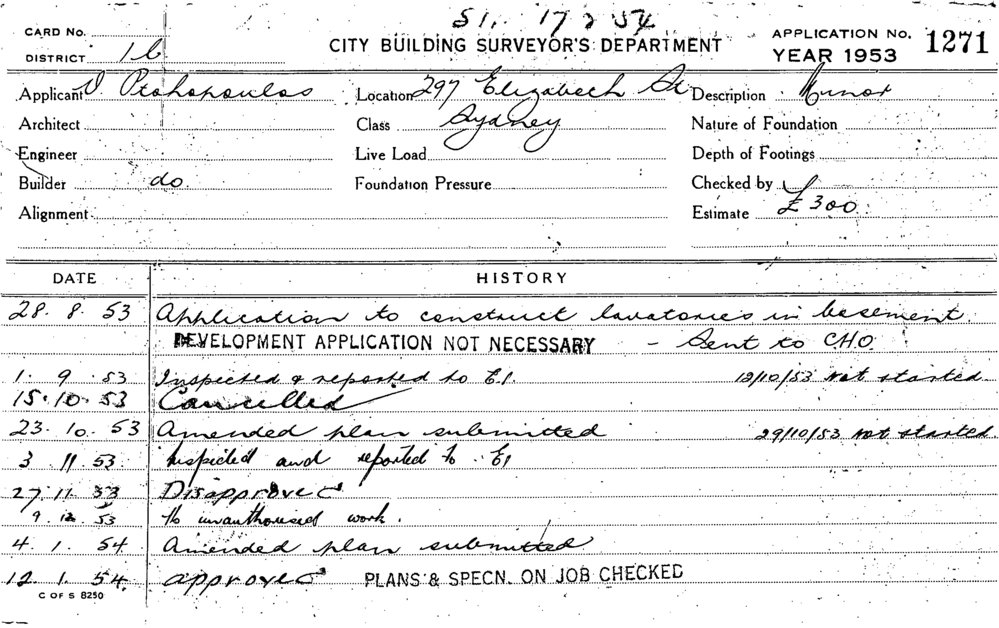 S1. 17 2 54
CARD No.
DISTRICT 1b
CITY BUILDING SURVEYOR'S DEPARTMENT
APPLICATION No. 1271
YEAR 1953
Applicant Location 297 Elizabeth St. Description Minor
Architect Class Sydney Nature of Foundation
Engineer Live Load Depth of Footings
Builder do. Foundation Pressure Checked by
Alignment Estimate £300
DATE HISTORY
28. 8. 53 Application to construct lavatories in basement.
DEVELOPMENT APPLICATION NOT NECESSARY - Sent to CHO.
1. 9. 53 Inspected & reported to E.I. 12/10/53 not started
15.10.53 Cancelled
23. 10. 53 Amended plan submitted 29/10/53 not started
3 11 53 Inspected and reported to E1
27.11.53 Disapproved
9. 12. 53 to unauthorised work.
4. 1. 54 Amended plan submitted
12. 1. 54. approved PLANS & SPECN. ON JOB CHECKED
C OF S 8250